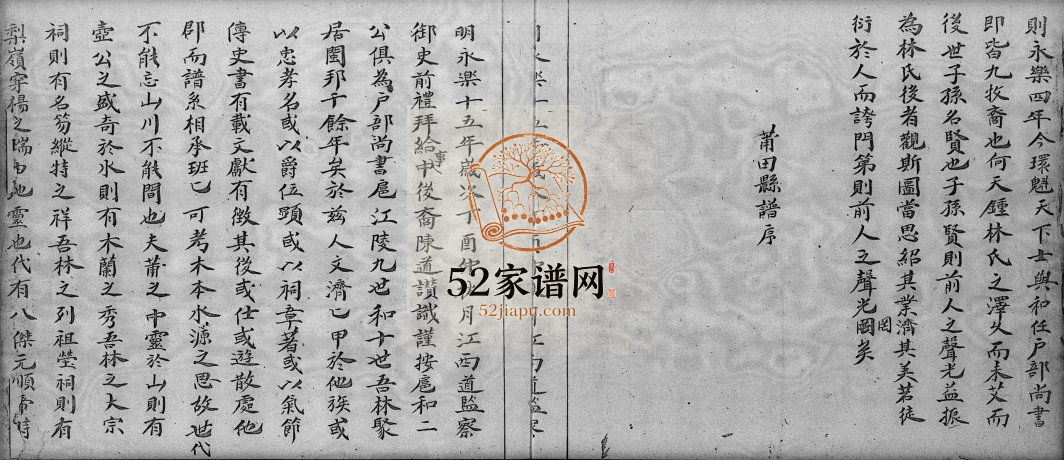 則永樂四年今環魁天下士與和任户部尚書
即皆九牧裔也何天鍾林氏之澤久而未艾而
後世子孫名賢也子孫賢則前人之聲光益振
為林氏後者觀斯圖當思紹其業濟其美若徒
衍於人而誇門第則前人之聲光圖矣
罔
莆田縣譜序
明永樂十五年歲次丁酉 月江西道監察
御史前禮拜給事中後裔陳道讚識謹按扈和二
公俱為户部尚書扈江陵九世和十世吾林聚
居閩邦千餘年矣於茲人文濟已甲於他族或
以忠孝名或以爵位顯或以祠章著或以氣節
傳史書有載文獻有徵其後或仕或遊散處他
郡而譜系相承班已可考木本水源之思故世代
不能忘山川不能間也夫莆之中靈於山則有
壺公之盛奇於水則有木蘭之秀吾林之大宗
祠則有名笏縱特之祥吾林之列祖塋祠則有
梨嶺穿楊之瑞 地靈也代有八傑元順帝時
52家谱网
52jiapu.com